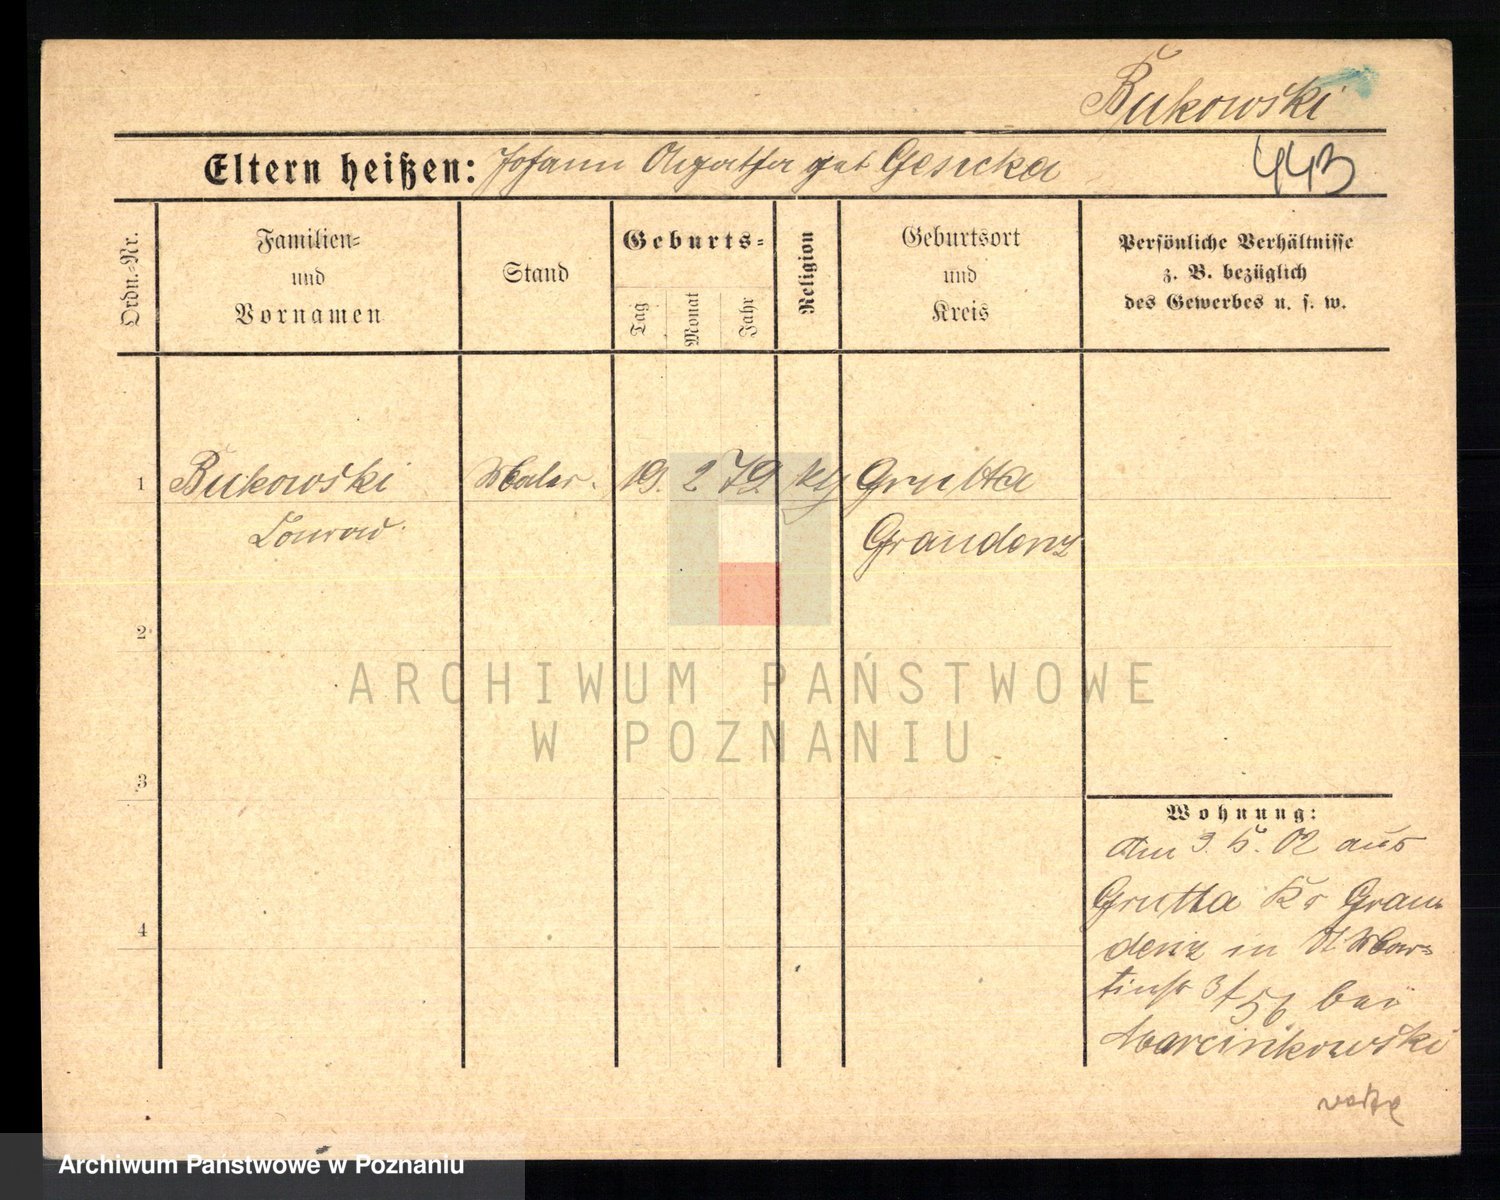 Bukowski
Eltern heißen: Johann Agatha geb Gesicka
443
Ordn.-Nr.
Familien-
und
Vornamen
Stand
Geburts-
Tag
Monat
Jahr
Religion
Geburtsort
und
Kreis
Persönliche Verhältnisse
z. B. bezüglich
des Gewerbes u. s. w.
1 Bukowski Maler. 19. 2 79. Grutta
Konrad Graudenz
2
3
4
Wohnung:
Am 3. 5. 02 aus
Grutta Kr Grau-
denz in St. Mar-
tinstr bei
Marcinkowski
ARCHIWUM PAŃSTWOWE
W POZNANIU
Archiwum Państwowe w Poznaniu